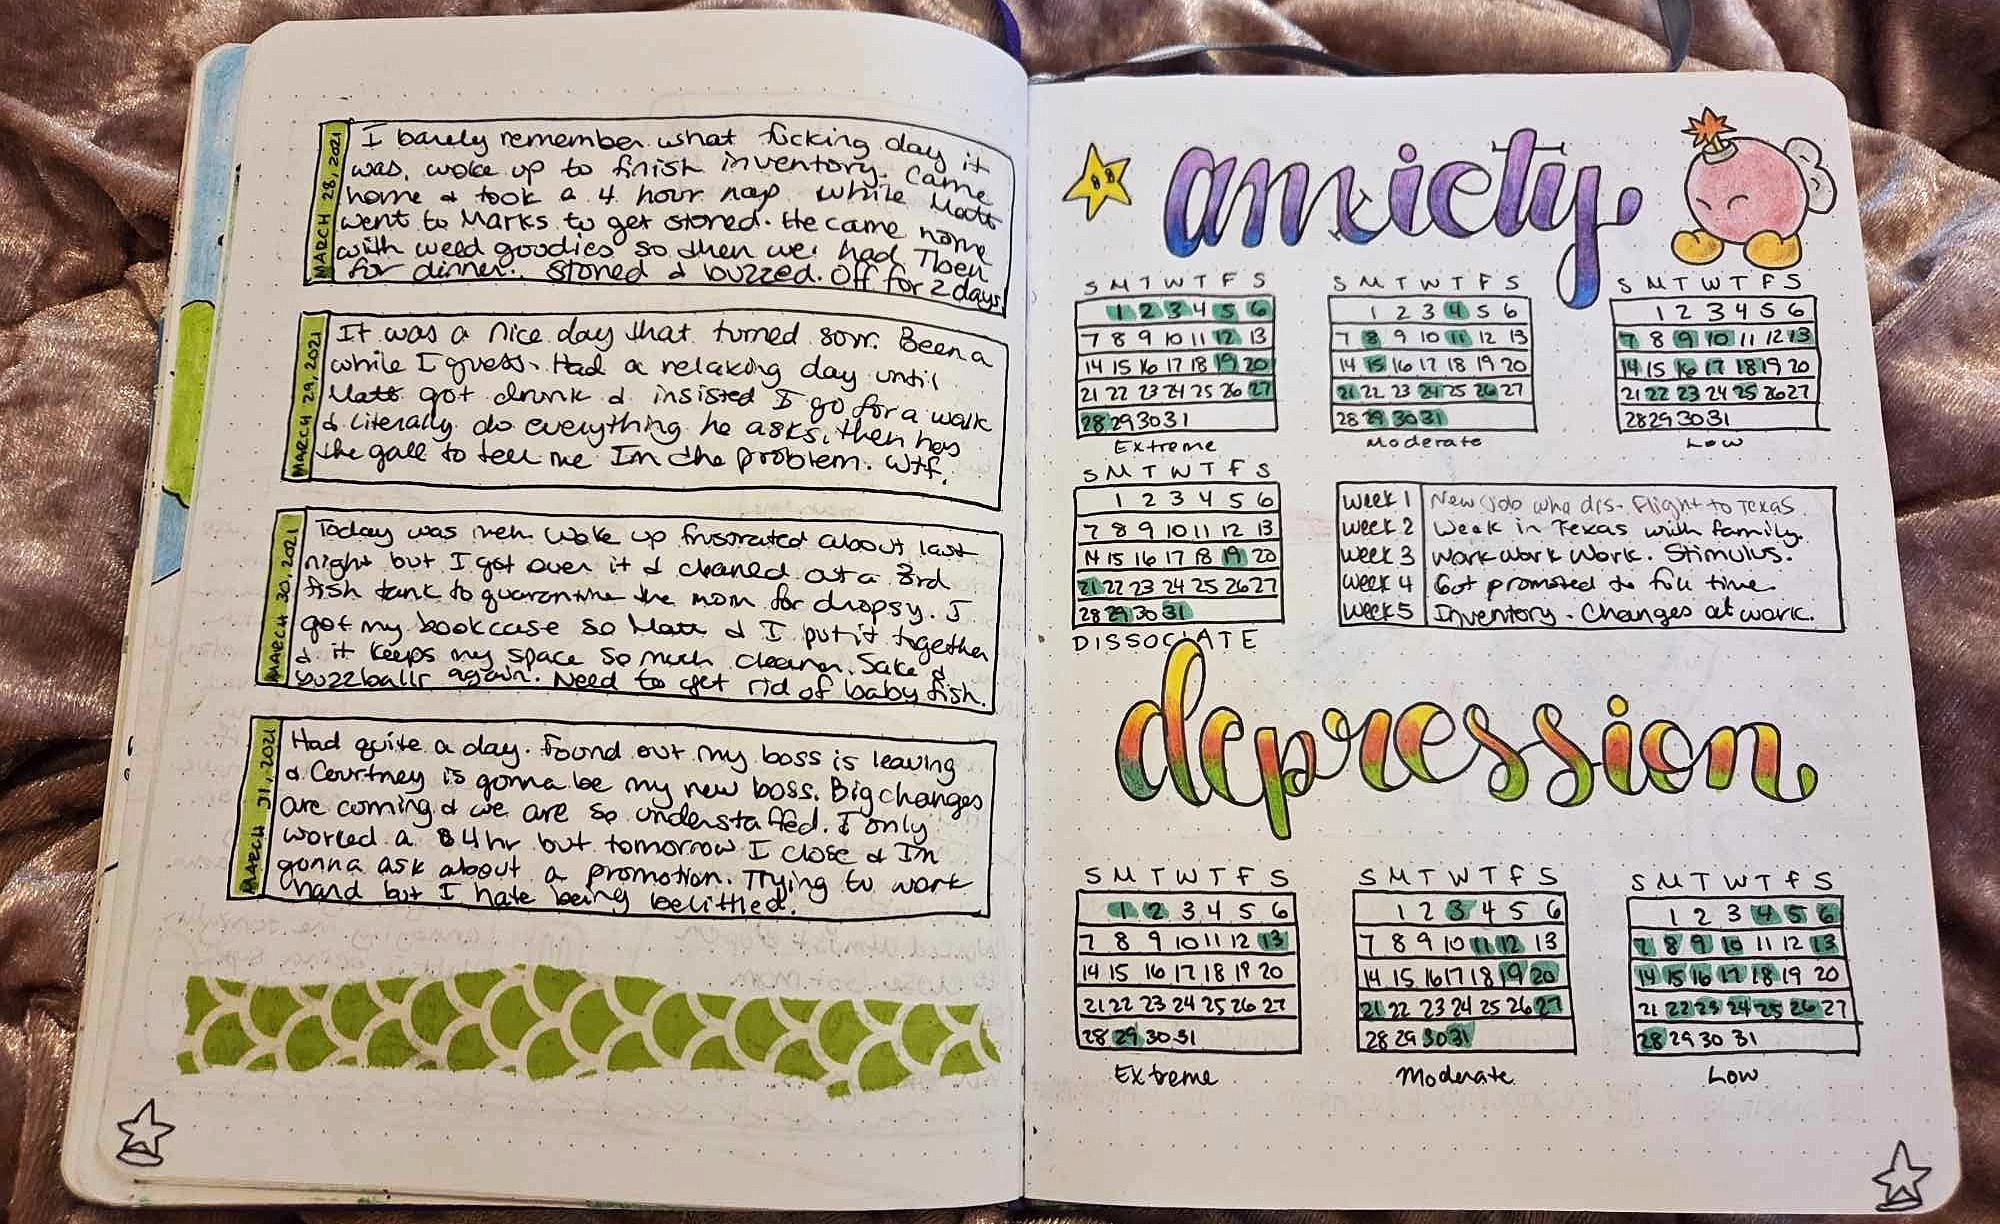 MARCH 28, 2021
I barely remember what fucking day it
was. woke up to finish inventory. Came
home & took a 4 hour nap while Matt
went to Marks to get stoned. He came home
with weed goodies so then we had Tben
for dinner. Stoned & buzzed. Off for 2 days!
MARCH 29, 2021
It was a nice day that turned sour. Been a
while I guess. Had a relaxing day until
Matt got drunk & insisted I go for a walk
& literally do everything he asks, then has
the gall to tell me Im the problem. Wtf.
MARCH 30, 2021
Today was meh. Woke up frusrated about last
night but I got over it & cleaned out a 3rd
fish tank to quarantine the mom for dropsy. I
got my bookcase so Matt & I put it together
& it keeps my space so much cleaner. Sake &
buzzballs again. Need to get rid of baby fish.
MARCH 31, 2021
Had quite a day. Found out my boss is leaving
& Courtney is gonna be my new boss. Big changes
are coming & we are so understaffed. I only
worked a 4hr but tomorrow I close & Im
gonna ask about a promotion. Trying to work
hard but I hate being belittled.
anxiety
S M T W T F S
1 2 3 4 5 6
7 8 9 10 11 12 13
14 15 16 17 18 19 20
21 22 23 24 25 26 27
28 29 30 31
Extreme
S M T W T F S
1 2 3 4 5 6
7 8 9 10 11 12 13
14 15 16 17 18 19 20
21 22 23 24 25 26 27
28 29 30 31
Moderate
S M T W T F S
1 2 3 4 5 6
7 8 9 10 11 12 13
14 15 16 17 18 19 20
21 22 23 24 25 26 27
28 29 30 31
Low
S M T W T F S
1 2 3 4 5 6
7 8 9 10 11 12 13
14 15 16 17 18 19 20
21 22 23 24 25 26 27
28 29 30 31
DISSOCIATE
Week 1 New job who dis. Flight to Texas.
Week 2 Week in Texas with family.
Week 3 Work Work Work. Stimulus.
Week 4 Got promoted to full time
Week 5 Inventory. Changes at work.
depression
S M T W T F S
1 2 3 4 5 6
7 8 9 10 11 12 13
14 15 16 17 18 19 20
21 22 23 24 25 26 27
28 29 30 31
Extreme
S M T W T F S
1 2 3 4 5 6
7 8 9 10 11 12 13
14 15 16 17 18 19 20
21 22 23 24 25 26 27
28 29 30 31
Moderate
S M T W T F S
1 2 3 4 5 6
7 8 9 10 11 12 13
14 15 16 17 18 19 20
21 22 23 24 25 26 27
28 29 30 31
Low